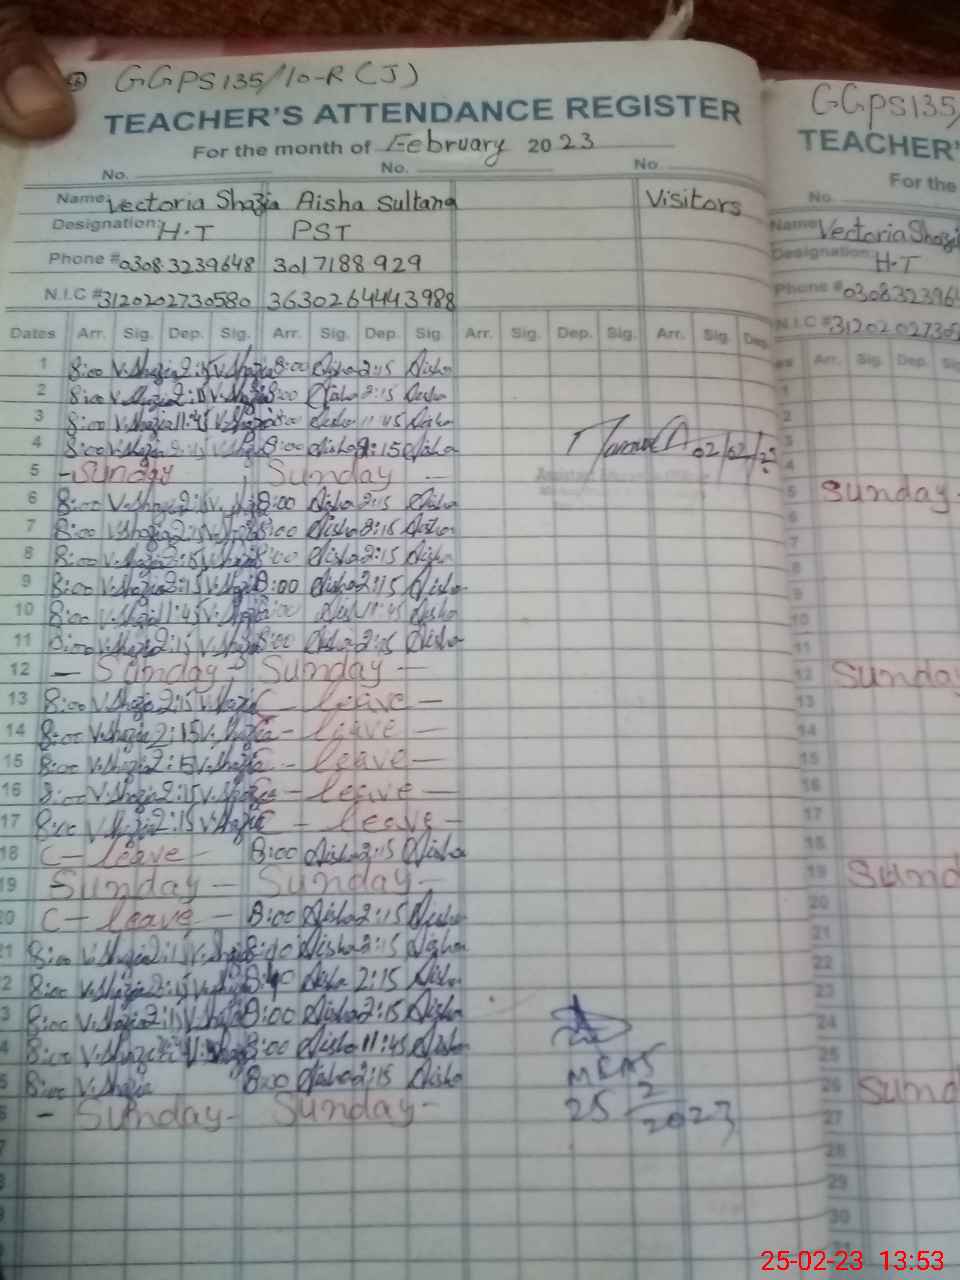 GGPS135/10-R(J)
TEACHER'S ATTENDANCE REGISTER
For the month of February 2023
No. No. No
Name: Vectoria Shazia Aisha Sultana Visitors
Designation: H.T PST
Phone # 0308.3239648 3017188929
N.I.C # 3120202730580 3630264443988
Dates Arr. Sig. Dep. Sig. Arr. Sig. Dep. Sig. Arr. Sig. Dep. Sig. Arr. Sig. Dep.
1 8:00 V.Shazia 2:15 V.Shazia 8:00 Aisha 2:15 Aisha
2 8:00 V.Shazia 2:15 V.Shazia 8:00 Aisha 2:15 Aisha
3 8:00 V.Shazia 11:45 V.Shazia 8:00 Aisha 11:45 Aisha
4 8:00 V.Shazia 2:15 V.Shazia 8:00 Aisha 2:15 Aisha 02/02/23
5 - Sunday Sunday -
6 8:00 V.Shazia 2:15 V.Shazia 8:00 Aisha 2:15 Aisha
7 8:00 V.Shazia 2:15 V.Shazia 8:00 Aisha 2:15 Aisha
8 8:00 V.Shazia 2:15 V.Shazia 8:00 Aisha 2:15 Aisha
9 8:00 V.Shazia 2:15 V.Shazia 8:00 Aisha 2:15 Aisha
10 8:00 V.Shazia 11:45 V.Shazia 8:00 Aisha 11:45 Aisha
11 8:00 V.Shazia 2:15 V.Shazia 8:00 Aisha 2:15 Aisha
12 - Sunday - Sunday -
13 8:00 V.Shazia 2:15 V.Shazia C - leave -
14 8:00 V.Shazia 2:15 V.Shazia C - leave -
15 8:00 V.Shazia 2:15 V.Shazia C - leave -
16 8:00 V.Shazia 2:15 V.Shazia C - leave -
17 8:00 V.Shazia 2:15 V.Shazia C - leave -
18 C - leave - 8:00 Aisha 2:15 Aisha
19 Sunday - Sunday -
20 C - leave - 8:00 Aisha 2:15 Aisha
21 8:00 V.Shazia 2:15 V.Shazia 8:00 Aisha 2:15 Aisha
2 8:00 V.Shazia 2:15 V.Shazia Aisha 2:15 Aisha
3 8:00 V.Shazia 2:15 V.Shazia 8:00 Aisha 2:15 Aisha
4 8:00 V.Shazia V.Shazia 8:00 Aisha 11:45 Aisha
5 8:00 V.Shazia 8:00 Aisha 2:15 Aisha
6 - Sunday - Sunday -
7
8
9
MEAS
25 2 2023
GGPS135/
TEACHER'
For the
No.
Name Vectoria Shazi
Designation: H.T
Phone # 030832396
N.I.C # 312020273
es Arr. Sig. Dep. Sig
1
2
3
4
5 Sunday
6
7
8
9
10
11
12 Sunday
13
14
15
16
17
18
19 Sund
20
21
22
23
24
25
26 Sund
27
28
29
30
31
25-02-23 13:53